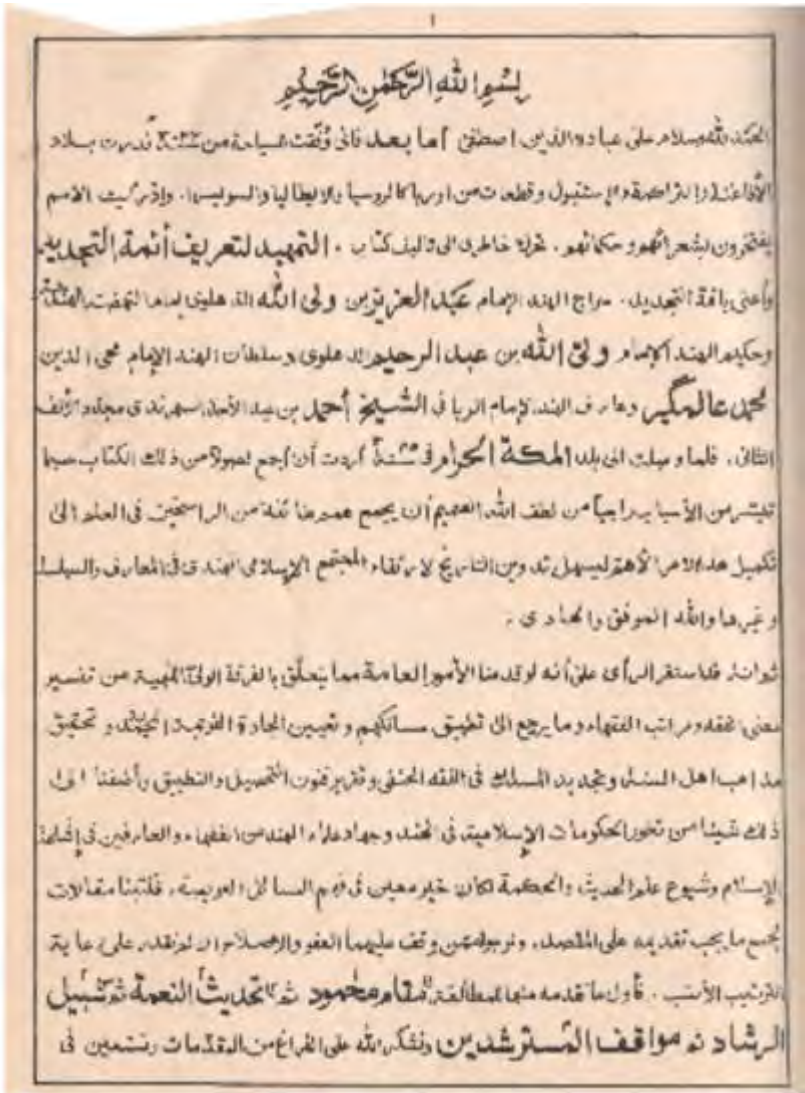 ١
بسم الله الرحمن الرحيم
الحمد لله وسلام على عباده الذين اصطفى أما بعد فانى وُفّقت لسياحة من بلاد
الأفاغنة والتراكمة والإستنبول وقطعات من اوربا كالروسيا والايطاليا والسويسرا. وإذ رأيت الامم
يفتخرون بشعرائهم وحكمائهم. خاطرى الى تاليف كتاب. التمهيد لتعريف أئمة التجديد
وأعنى بأئمة التجديد. سراج الهند الإمام عبد العزيز بن ولى الله الدهلوى امام
وحكيم الهند الإمام ولى الله بن عبد الرحيم الدهلوى وسلطان الهند الإمام محى الدين
محمد عالمگير وعارف الهند الإمام الربانى الشيخ أحمد بن عبد الأحد السهرندى مجدد الألف
الثانى. فلما وصلت الى بلد المكة الحرام فى أردت أن أجمع فصولا من ذلك الكتاب حسبما
تيسر من الأسباب راجياً من لطف الله العميم أن يجمع طائفة من الراسخين فى العلم الى
تكميل هذا الامر الأهم ليسهل تدوين التاريخ لارتقاء المجتمع الإسلامى الهندى فى المعارف والسياسة
وغيرها والله الموفق والهادى.
ثم انه قد استقر الرأى على أنه لو قدمنا الأمور العامة مما يتعلّق بالفرقة الولى اللهية من تفسير
معنى الفقه ومراتب الفقهاء وما يرجع الى تطبيق مسالكهم وتعيين الجادة القويمة المحمدية وتحقيق
مذاهب اهل السنة وتجديد المسلك فى الفقه الحنفى وتقرير فنون التحصيل والتطبيق وأضفنا الى
ذلك شيئا من تطور الحكومات الإسلامية فى الهند وجهاد علماء الهند من الفقهاء والعارفين فى إقامة
الإسلام وشيوع علم الحديث والحكمة لكان خير معين فى فهم المسائل العويصة. فكتبنا مقالات
تجمع ما يجب تقديمه على المقصد. ونرجو ممن وقف عليها العفو والإصلاح ان لم نقدر على رعاية
الترتيب الأنسب. فأول ما نقدمه منها للمطالعة مقام محمود ثم تحديث النعمة ثم سبيل
الرشاد ثم مواقف المسترشدين ونشكر الله على الفراغ من المقدمات ونستعين فى